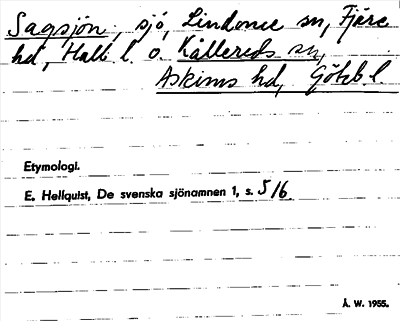 Sagsjön, sjö, Lindome sn, Fjäre
hd, Hall. l. o. Kållereds sn,
Askims hd, Göteb. l.
Etymologi.
E. Hellquist, De svenska sjönamnen 1, s. 516.
Å. W. 1955.